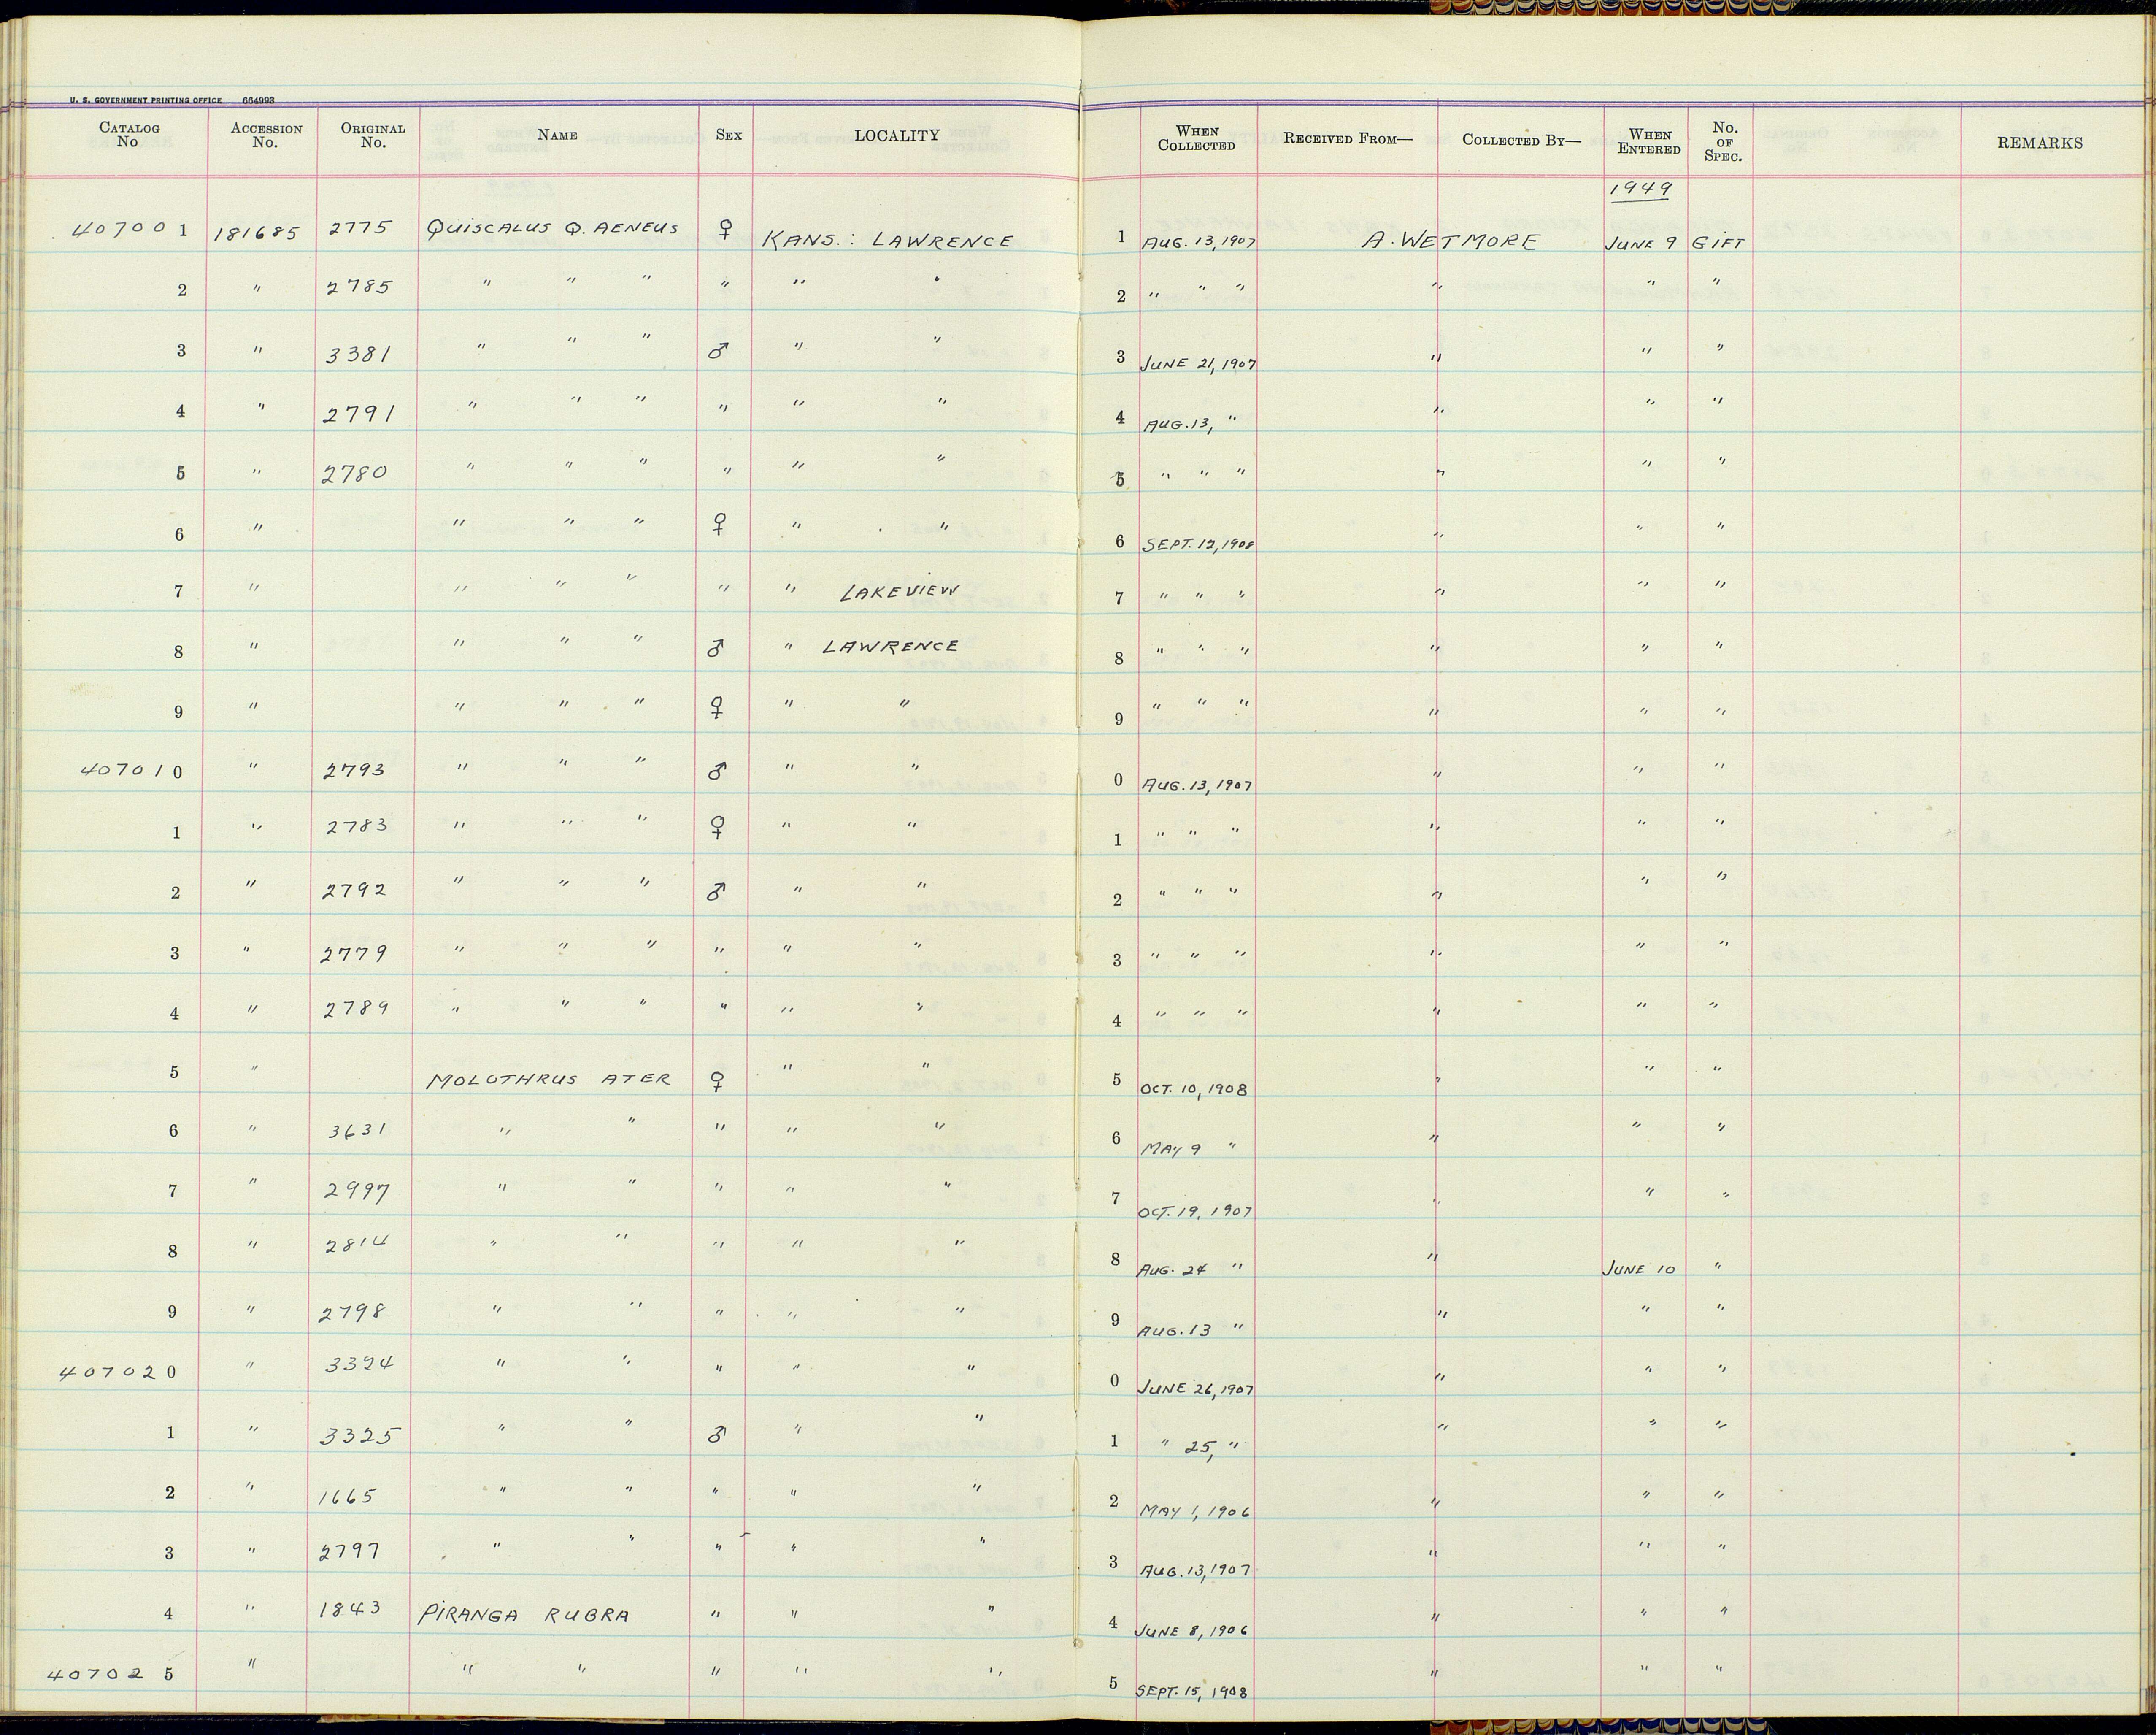 U. S. GOVERNMENT PRINTING OFFICE 664993
CATALOG No ACCESSION No. ORIGINAL No. NAME SEX LOCALITY WHEN COLLECTED RECEIVED FROM— COLLECTED BY— WHEN ENTERED No. OF SPEC. REMARKS
1949
407001 181685 2775 QUISCALUS Q. AENEUS ♀ KANS.: LAWRENCE 1 AUG. 13, 1907 A. WETMORE JUNE 9 GIFT
2 " 2785 " " " " " " 2 " " " " " "
3 " 3381 " " " ♂ " " 3 JUNE 21, 1907 " " "
4 " 2791 " " " " " " 4 AUG. 13, " " " "
5 " 2780 " " " " " " 5 " " " " " "
6 " " " " ♀ " " 6 SEPT. 12, 1908 " " "
7 " " " " " " LAKEVIEW 7 " " " " " "
8 " " " " ♂ " LAWRENCE 8 " " " " " "
9 " " " " ♀ " " 9 " " " " " "
407010 " 2793 " " " ♂ " " 0 AUG. 13, 1907 " " "
1 " 2783 " " " ♀ " " 1 " " " " " "
2 " 2792 " " " ♂ " " 2 " " " " " "
3 " 2779 " " " " " " 3 " " " " " "
4 " 2789 " " " " " " 4 " " " " " "
5 " MOLOTHRUS ATER ♀ " " 5 OCT. 10, 1908 " " "
6 " 3631 " " " " " 6 MAY 9 " " " "
7 " 2997 " " " " " 7 OCT. 19, 1907 " " "
8 " 2814 " " " " " 8 AUG. 24 " " JUNE 10 "
9 " 2798 " " " " " 9 AUG. 13 " " " "
407020 " 3324 " " " " " 0 JUNE 26, 1907 " " "
1 " 3325 " " ♂ " " 1 " 25, " " " "
2 " 1665 " " " " " 2 MAY 1, 1906 " " "
3 " 2797 " " " " " 3 AUG. 13, 1907 " " "
4 " 1843 PIRANGA RUBRA " " " 4 JUNE 8, 1906 " " "
407025 " " " " " " 5 SEPT. 15, 1908 " " "